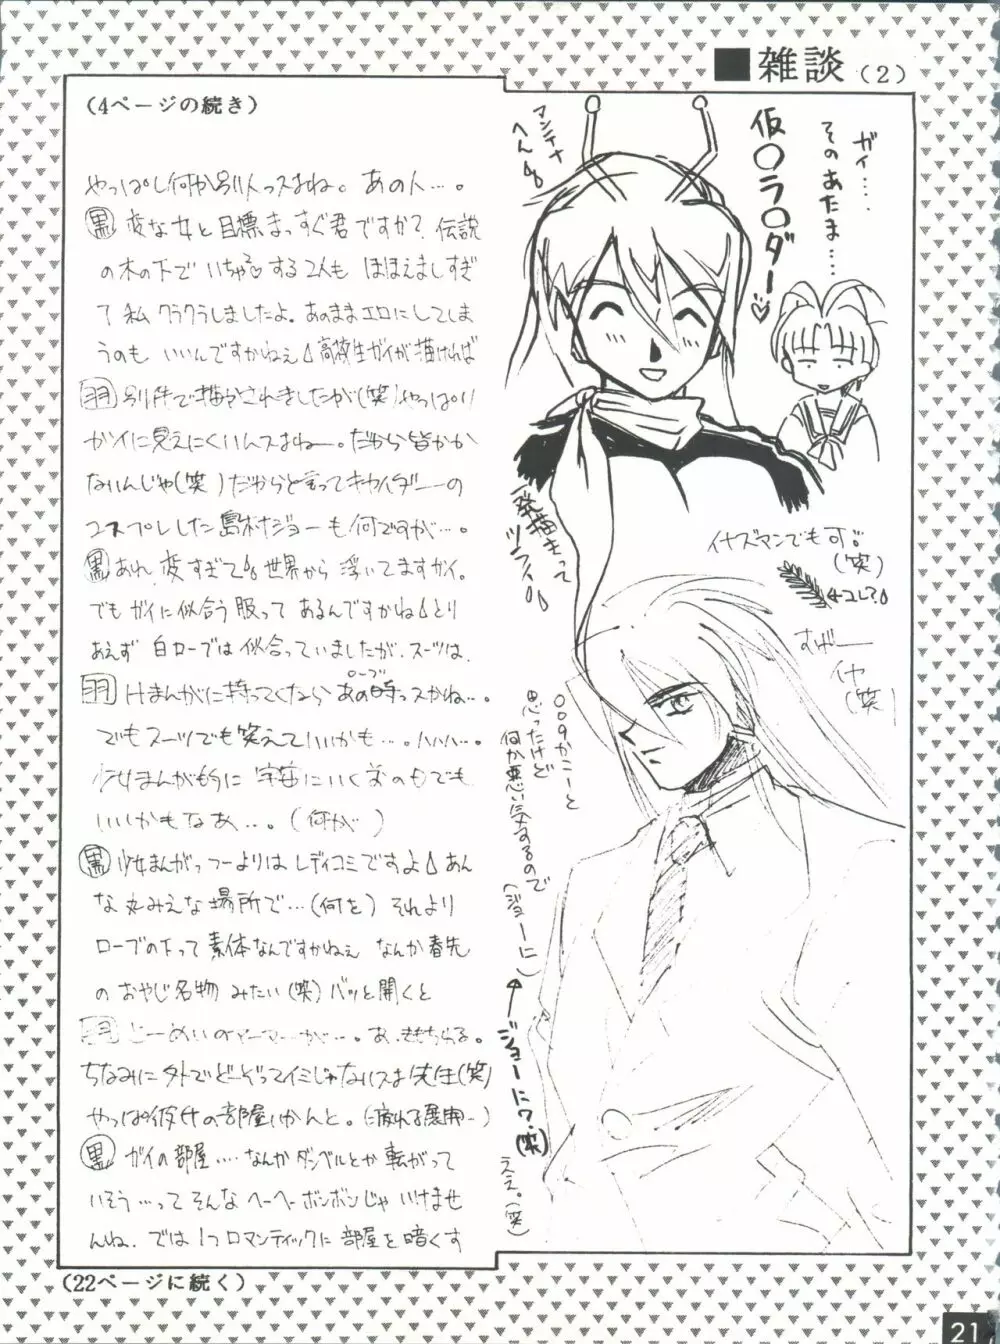 ■雑談(2)
(4ページの続き)
やっぱし何か別人っスよね。あの人…。
黒 変な女と目標まっすぐ君ですか?伝説
の木の下でいちゃつする2人もほほえましすぎ
て私クラクラしましたよ。あのままエロにしてしま
うのもいいんですかねぇ 高校生ガイが描ければ
羽 別件で描かされましたが(笑)やっぱり
ガイに見えにくいんスよねー。だから皆かか
ないんじゃ(笑)だからと言ってキカイダーの
コスプレした島本ジョーも何ですが…。
黒 あれ、変すぎて 世界から浮いてますガイ。
でもガイに似合う服ってあるんですかね とり
あえず白ローブでは似合っていましたが、スーツは、
ローブ
羽 けまんがに持ってくなら あの時っスかね…。
でもスーツでも笑えていいかも…。ハハハ…。
少女まんがもうに宇宙にいく
いいかもなあ…。(何が)
黒 少女まんがっつーよりはレディコミですよ あん
な丸みえな場所で…(何を) それより
ローブの下って素体なんですかねぇ なんか春先
のおやじ名物みたい(笑)バッと開くと
羽
ちなみに外でどーぞってイミじゃないスよ先生(笑)
やっぱ彼女の部屋いかんと。(疲れる展開ー)
黒 ガイの部屋….なんかダンベルとか転がって
いそう…ってそんなヘーヘーボンボンじゃいけませ
んね。では1つロマンティックに部屋を暗くす
(22ページに続く)
マンテナ
へん
仮○ラ○ダー♡
ガイ……
そのあたま……
一発描きって
ツライ
イナズマンでも可。
(笑)
←コレ?
すげー
イヤ
(笑)
009かにーと
思ったけど
何か悪い気するので
(ジョーに)
←ジョーに?(笑)
ええ。(笑)
21